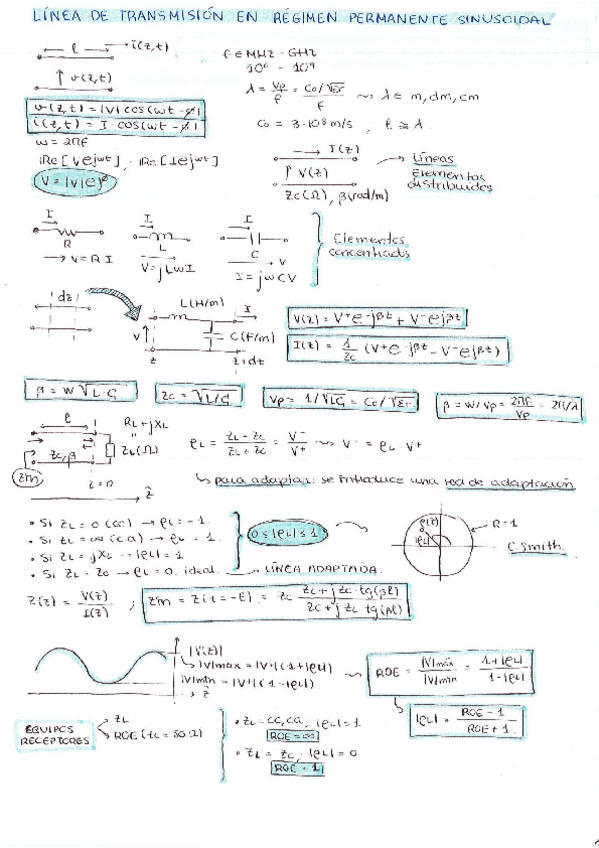 LÍNEA DE TRANSMISIÓN EN RÉGIMEN PERMANENTE SINUSOIDAL
ℓ i(z,t)
v(z,t)
f ∈ MHz - GHz
10⁶ - 10⁹
λ = Vp/f = Co/√εr / f ⇝ λ ∈ m, dm, cm
Co = 3·10⁸ m/s , ℓ ≅ λ
v(z,t) = |V| cos(ωt - ø)
i(z,t) = I cos(ωt - ø)
ω = 2πf
Re[Ve^jωt] , Re[Ie^jωt]
I(z)
V(z)
Zc(Ω), β(rad/m)
Líneas
Elementos
distribuidos
I I I
R L C
→ V = R I V = jLωI I = jωCV
Elementos
concentrados
dz
L(H/m) I
V C(F/m)
z z+dz
V(z) = V⁺e^-jβz + V⁻e^jβz
I(z) = 1/Zc (V⁺e^-jβz - V⁻e^jβz)
β = ω√L·C Zc = √L/C Vp = 1/√LC = Co/√εr β = ω/Vp = 2πf/Vp = 2π/λ
ℓ RL + jXL
Zc, β ZL(Ω)
Zin z = 0 ẑ
ρL = (ZL - Zc)/(ZL + Zc) = V⁻/V⁺ ⇝ V⁻ = ρL · V⁺
↳ para adaptar: se introduce una red de adaptación
• Si ZL = 0 (cc) → ρL = -1.
• Si ZL = ∞ (ca) → ρL = 1.
• Si ZL = jXL → |ρL| = 1
• Si ZL = Zc → ρL = 0. ideal. → LÍNEA ADAPTADA.
0 ≤ |ρL| ≤ 1
ρ(z) |ρL| R = 1
C. Smith.
Z(z) = V(z)/I(z) ; Zin = Z(z = -ℓ) = Zc (ZL + jZc·tg(βℓ))/(Zc + jZL tg(βℓ))
|V(z)|
|V|máx = |V⁺|(1+|ρL|)
|V|mín = |V⁺|(1-|ρL|)
ẑ
ROE = |V|máx/|V|mín = (1+|ρL|)/(1-|ρL|)
|ρL| = (ROE - 1)/(ROE + 1)
EQUIPOS
RECEPTORES
ZL
ROE (Zc = 50Ω)
• ZL = cc, ca, |ρL| = 1.
ROE = ∞
• ZL = Zc, |ρL| = 0
ROE = 1